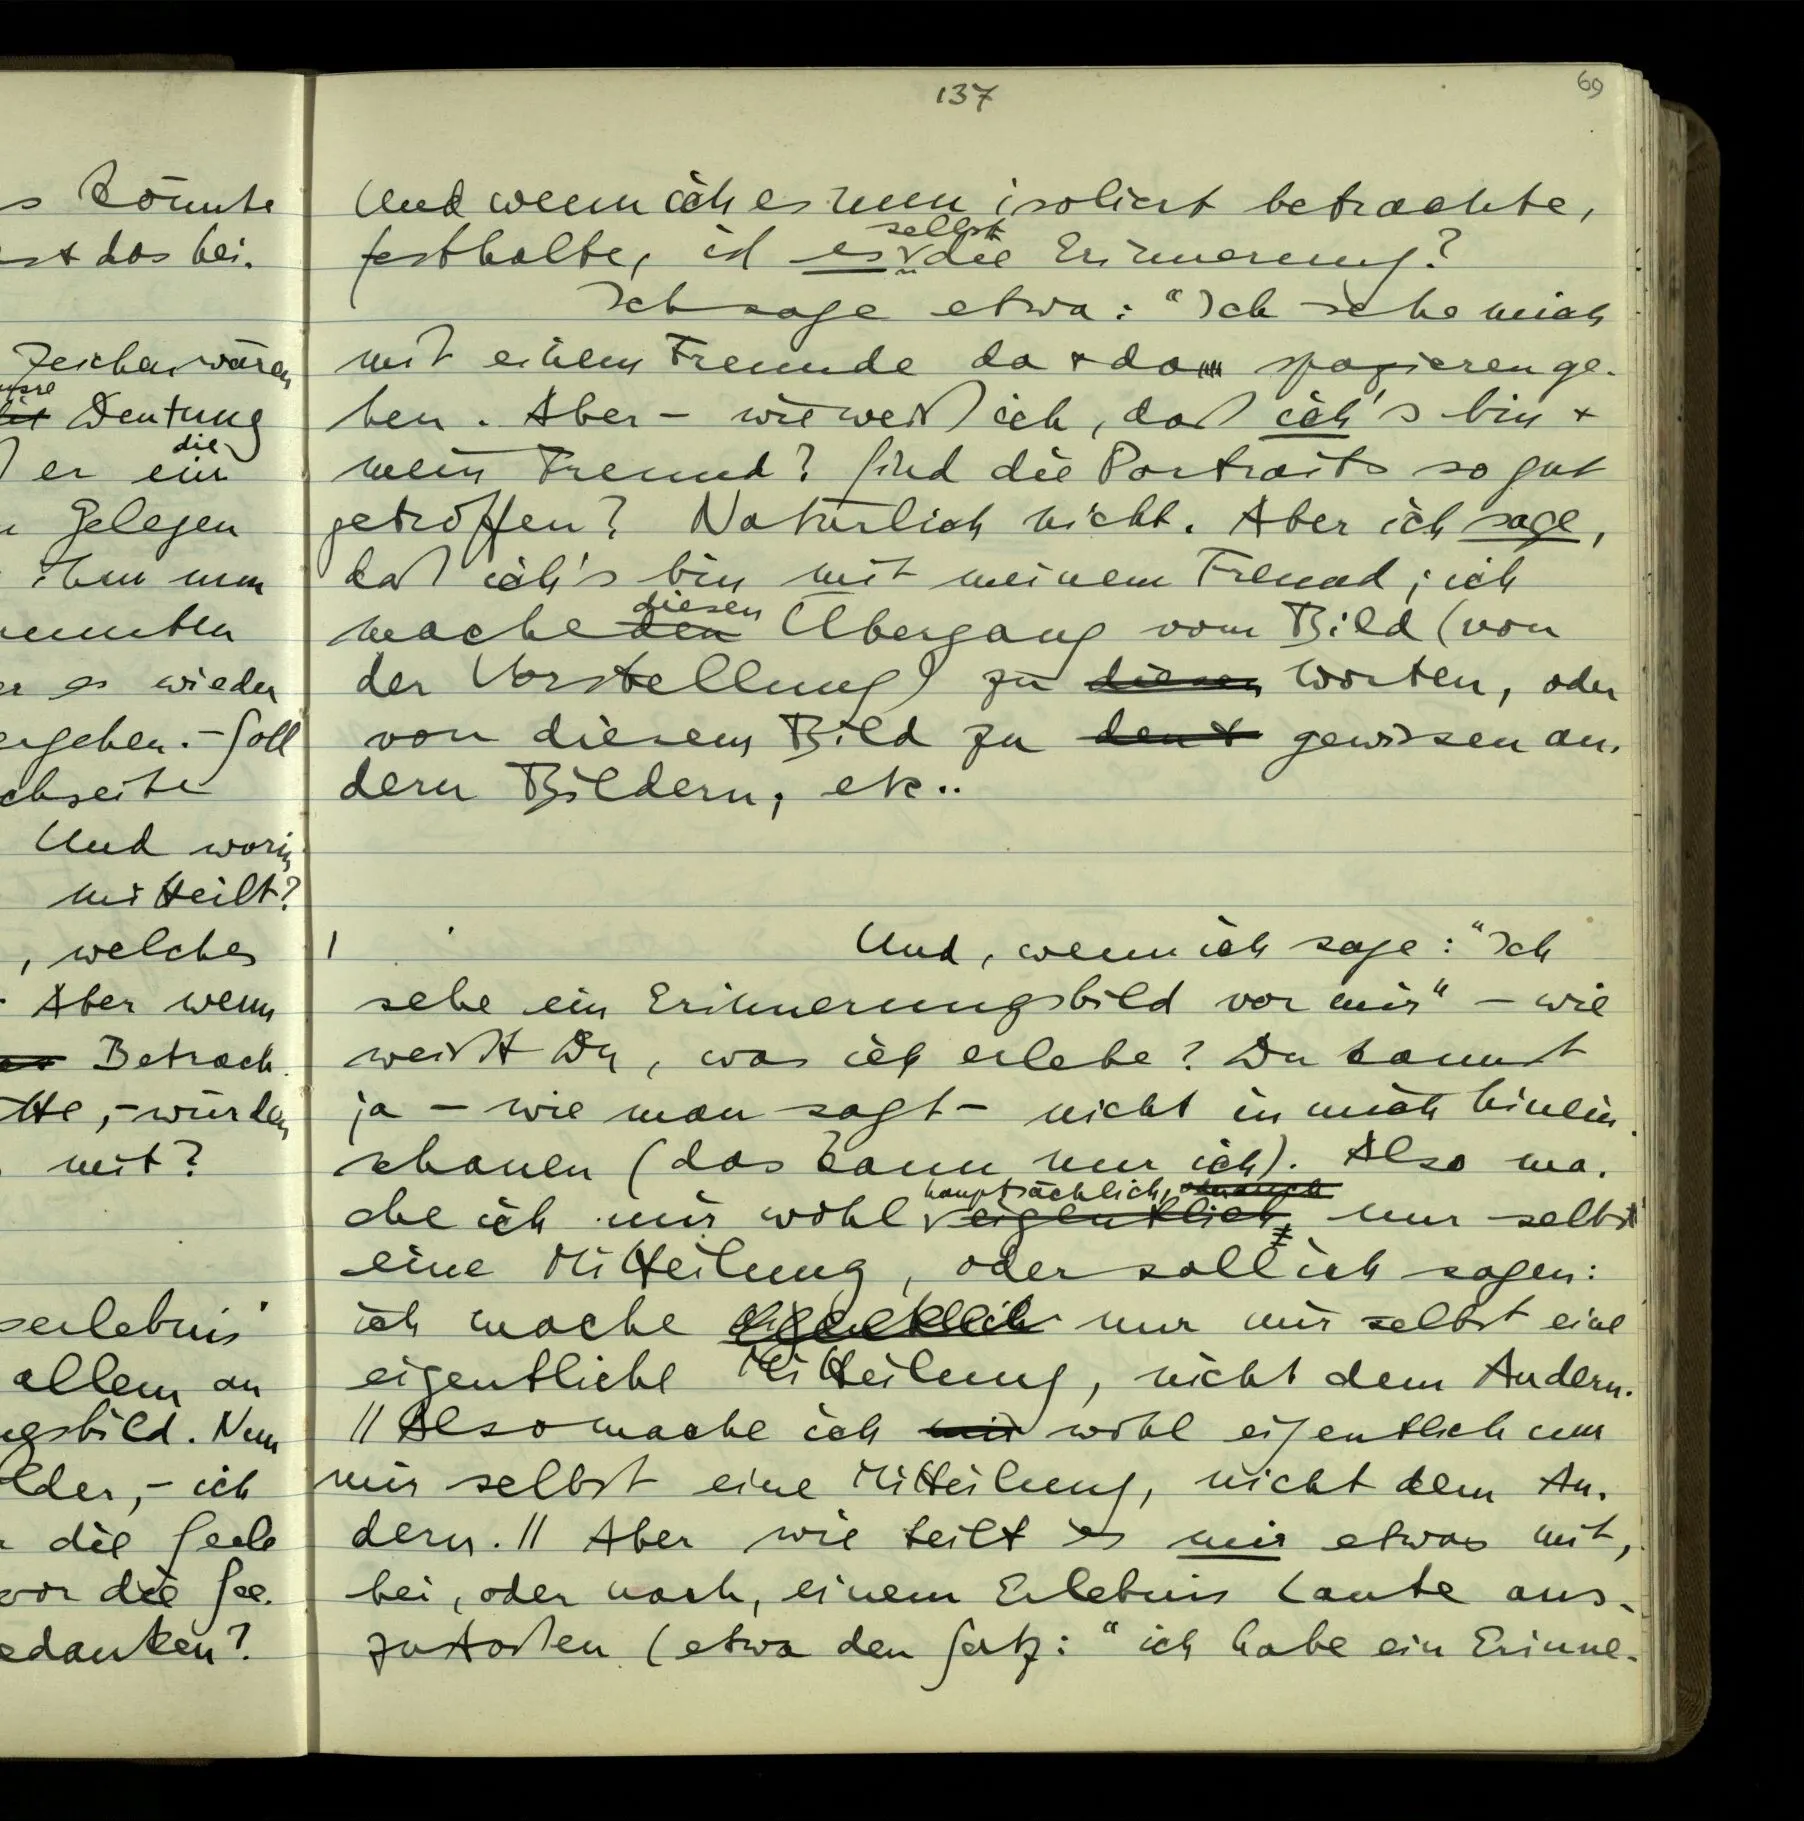 137
69
s könnte
est das bei.
Zeichen wären
unsre
Deutung
die
er ein
Gelegen
ihm nun
nannten
er es wieder
ergeben. – Soll
chseite
Und worin
mitteilt?
, welches
Aber wenn
Betrach-
tte, – würden
mit?
serlebnis'
allem an
ngsbild. Nun
lder, – ich
die Seele
vor die See-
edanken?
Und wenn ich es nun isoliert betrachte,
selbst
festhalte, ist es die Erinnerung?
Ich sage etwa: "Ich sehe mich
mit einem Freunde da + da spazierenge-
hen. Aber – wie weiß ich, daß ich's bin +
mein Freund? Sind die Portraits so gut
getroffen? Natürlich nicht. Aber ich sage,
daß ich's bin mit meinem Freund; ich
diesen
mache den Übergang vom Bild (von
der Vorstellung) zu diesen Worten, oder
von diesem Bild zu gewissen an-
dern Bildern, etc..
Und, wenn ich sage: "Ich
sehe ein Erinnerungsbild vor mir" – wie
weißt Du, was ich erlebe? Du kannst
ja – wie man sagt – nicht in mich hinein-
schauen (das kann nur ich). Also ma-
hauptsächlich, oder auch
che ich mir wohl eigentlich, nur selbst
eine Mitteilung, oder soll ich sagen:
ich mache eigentlich nur mir selbst eine
eigentliche Mitteilung, nicht dem Andern.
// Also mache ich mir wohl eigentlich nur
mir selbst eine Mitteilung, nicht dem An-
dern. // Aber wie teilt es mir etwas mit,
bei, oder nach, einem Erlebnis Laute aus-
zustoßen (etwa den Satz: "ich habe ein Erinne-